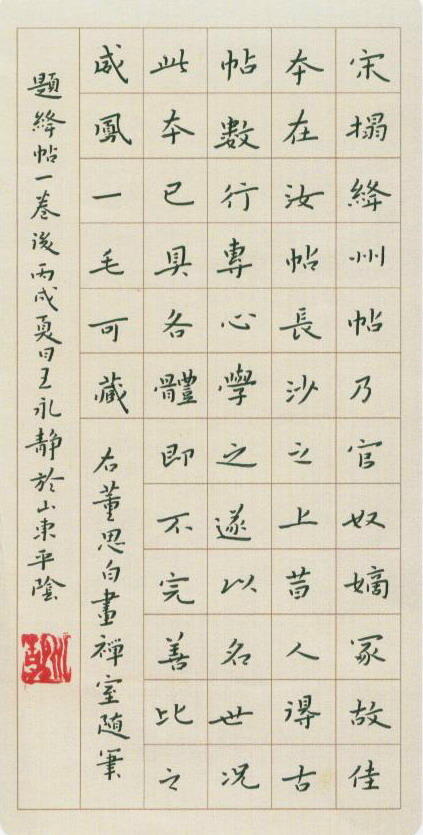 宋搨絳州帖乃官奴嫡冢故佳
本在汝帖長沙之上昔人得古
帖數行專心學之遂以名世况
此本已具各體即不完善比之
威鳳一毛可藏
右董思白畫禪室随筆
題絳帖一卷後丙戌夏日王永靜於山東平陰